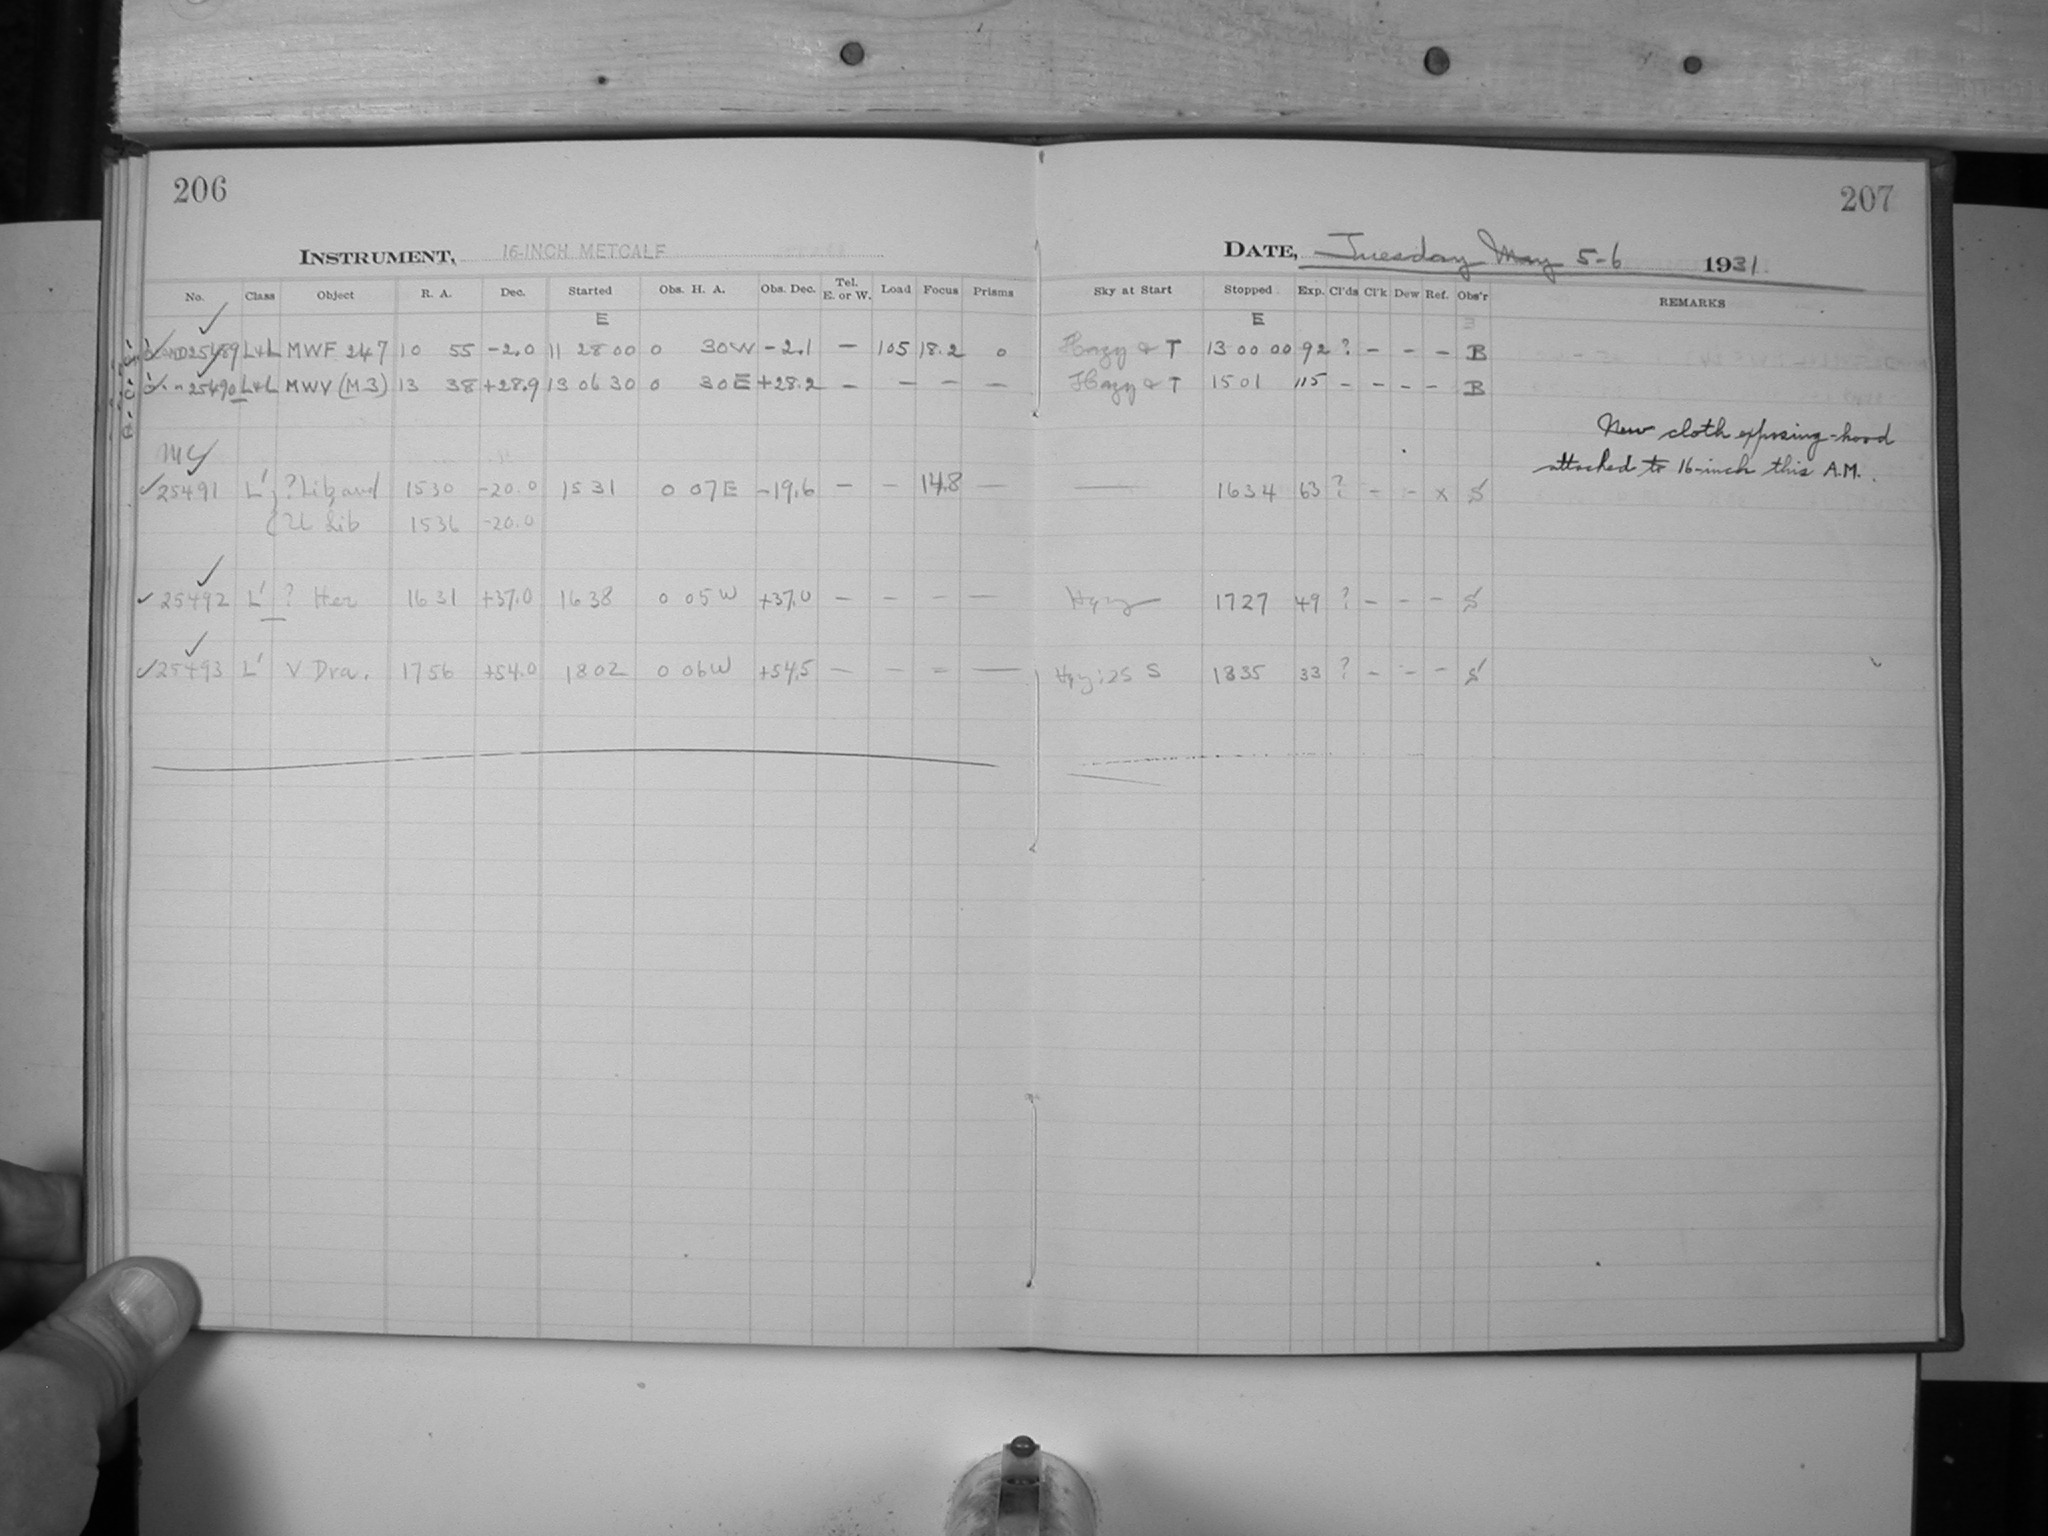 206
207
INSTRUMENT, 16-INCH METCALF
DATE, Tuesday May 5-6 1931
No. Class Object R. A. Dec. Started Obs. H. A. Obs. Dec. Tel. E. or W. Load Focus Prisms Sky at Start Stopped Exp. Cl'ds Cl'k Dew Ref. Obs'r REMARKS
E E
25489 L+L MWF 247 10 55 -2.0 11 28 00 0 30W -2.1 - 105 18.2 0 Hazy & T 13 00 00 92 ? - - - B
25490 L+L MWV (M3) 13 38 +28.9 13 06 30 0 30E +28.2 - - - - Hazy & T 1501 115 - - - - B
New cloth exposing-hood
attached to 16-inch this A.M.
MC
25491 L' ? Lib, and 1530 -20.0 1531 0 07E -19.6 - - 14.8 - - 1634 63 ? - - x S
Lib 1536 -20.0
25492 L' ? Her 1631 +37.0 1638 0 05W +37.0 - - - - Hazy 1727 49 ? - - - S
25493 L' V Dra. 1756 +54.0 1802 0 06W +54.5 - - - - S 1835 33 ? - - - S